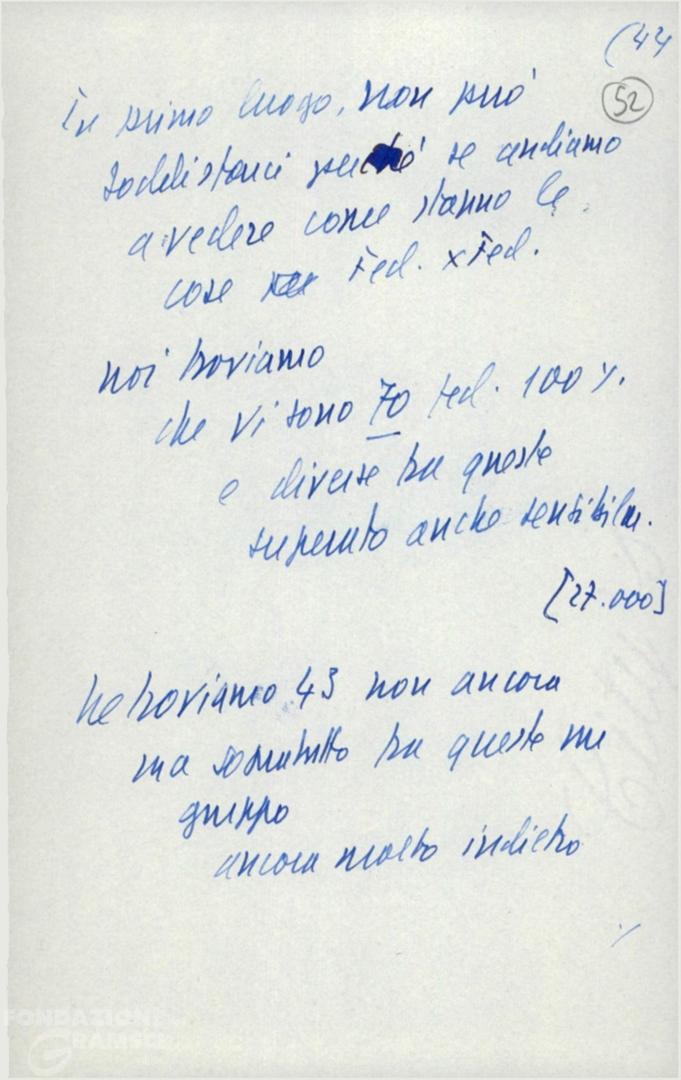 (44
52
In primo luogo, non può
soddisfarci perché se andiamo
a vedere come stanno le
cose Fed. x Fed.
noi troviamo
che vi sono 70 fed. 100%.
e diverse tra queste
superato anche sensibilm.
[27.000]
ne troviamo 43 non ancora
ma sopratutto tra queste un
gruppo
ancora molto indietro
FONDAZIONE
GRAMSCI